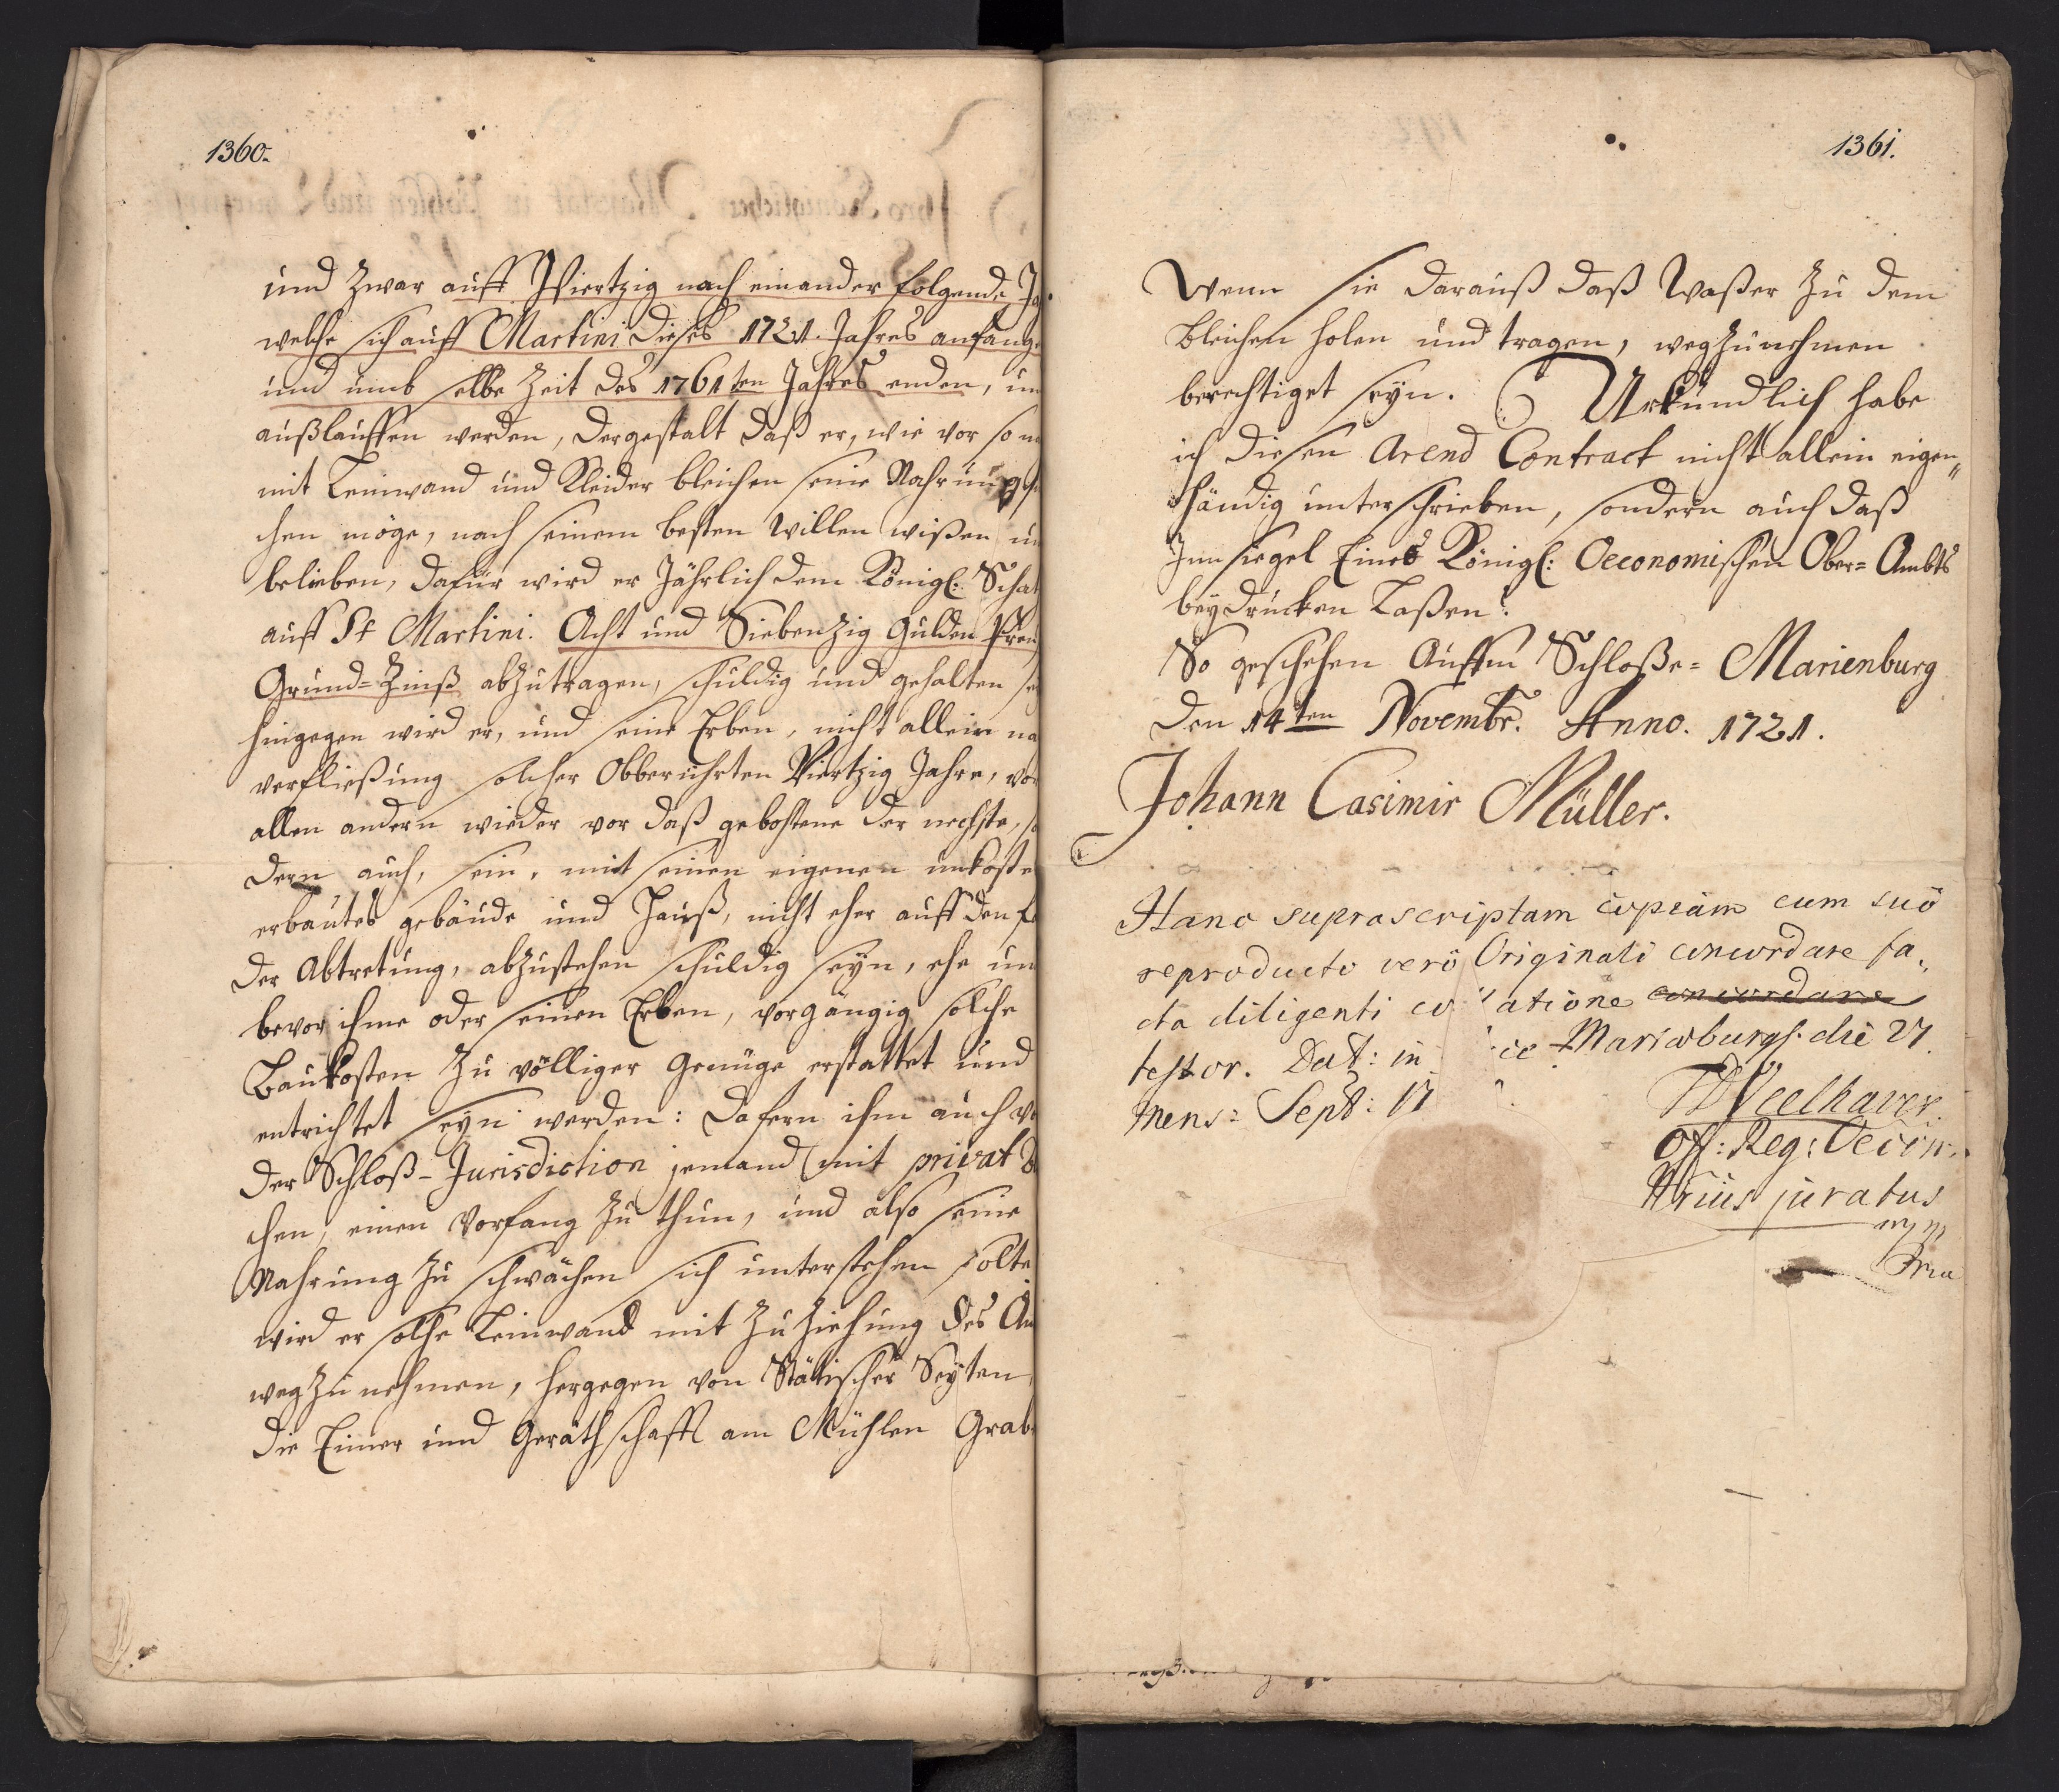 1360.
und zwar auff Viertzig nach einander folgende
welche sich auff Martini dieses 1721. Jahres anfange
und umb selbe Zeit des 1761ten Jahres enden, un
außlauffen werden, dergestalt daß er, wie vor so
mit Leinwand und Kleider bleichen seine Nahrung
chen möge, nach seinem besten Willen wißen
belieben, dafür wird er Jährlich dem Königl: Schat
auff St Martini. Acht und Siebenzig Gulden Preu
Grund=Zinß abzutragen, schuldig und gehalten
hingegen wird er, und seine Erben, nicht allein na
verfließung solcher Obberührten Viertzig Jahre, vor
allen andern wieder vor daß gebottene der nechste,
dern auch, sein, mit seinen eigenen unkosten
erbautes gebäude und Hauß, nicht eher auff den
der Abtretung, abzustehen schuldig seyn, ehe un
bevor ihme oder seinen Erben, vorgängig solche
Baukosten zu völliger Genüge erstattet und
entrichtet seyn werden: Dafern ihm auch
der Schloß-Jurisdiction jemand mit privat
chen, einen Vorfang zu thun, und also seine
Nahrung zu schwächen sich unterstehen solte
wird er solche Leinwand mit Zuziehung des
wegzunehmen, hergegen von Stätischer Seyten
die Eimer und Geräthschafft am Mühlen Grab
1361.
Wenn sie darauß daß Waßer zu dem
bleichen holen und tragen, wegzunehmen
berechtiget seyn. Urkundlich habe
ich diesen Arend Contract nicht allein eigen„
händig unterschrieben, sondern auch daß
Innsiegel Eines Königl: Oeconomischen Ober=Ambts
beydrucken Laßen.
So geschehen Auffm Schloße= Marienburg
den 14ten Novembr. Anno. 1721.
Johann Casimir Müller.
Hanc suprascriptam copiam cum suo
reproducto vero Originali concordare fa„
cta diligenti co atione concordare
testor. Dat: in ce Marienburg: die 27
mens: Sept: 17
Off: Reg: Oecon:
Nrius juratus
mpp